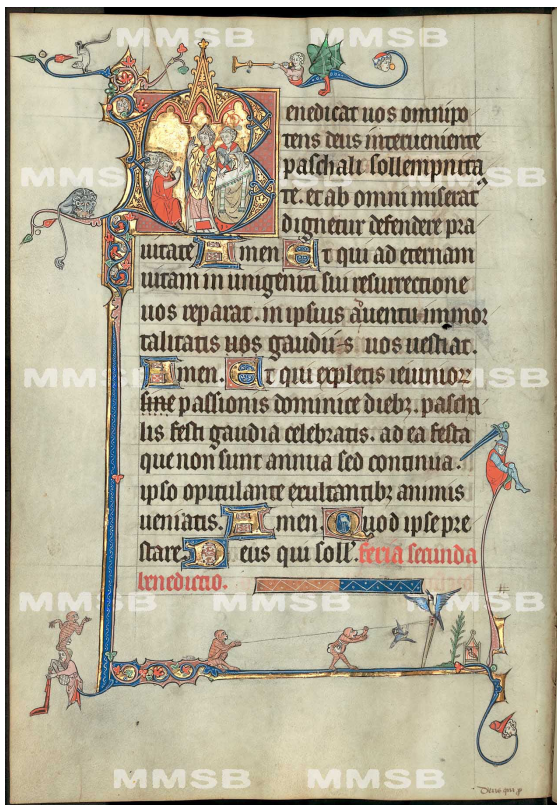 Benedicat uos omnipo
tens deus interueniente
paschali sollempnita
te. et ab omni miserat'
dignetur defendere pra
uitate Amen Et qui ad eternam
uitam in unigeniti sui resurrectione
uos reparat. in ipsius auentu immor
talitatis uos gaudiis uos uestiat.
Amen. Et qui expletis ieiunioꝝ
siue passionis dominice diebꝫ. pascha
lis festi gaudia celebratis. ad ea festa
que non sunt annua sed continua.
ipso opitulante exultantibꝫ animis
ueniatis. Amen. Quod ipse pre
stare. Deus qui soll'. feria secunda
benedictio.
MMSB